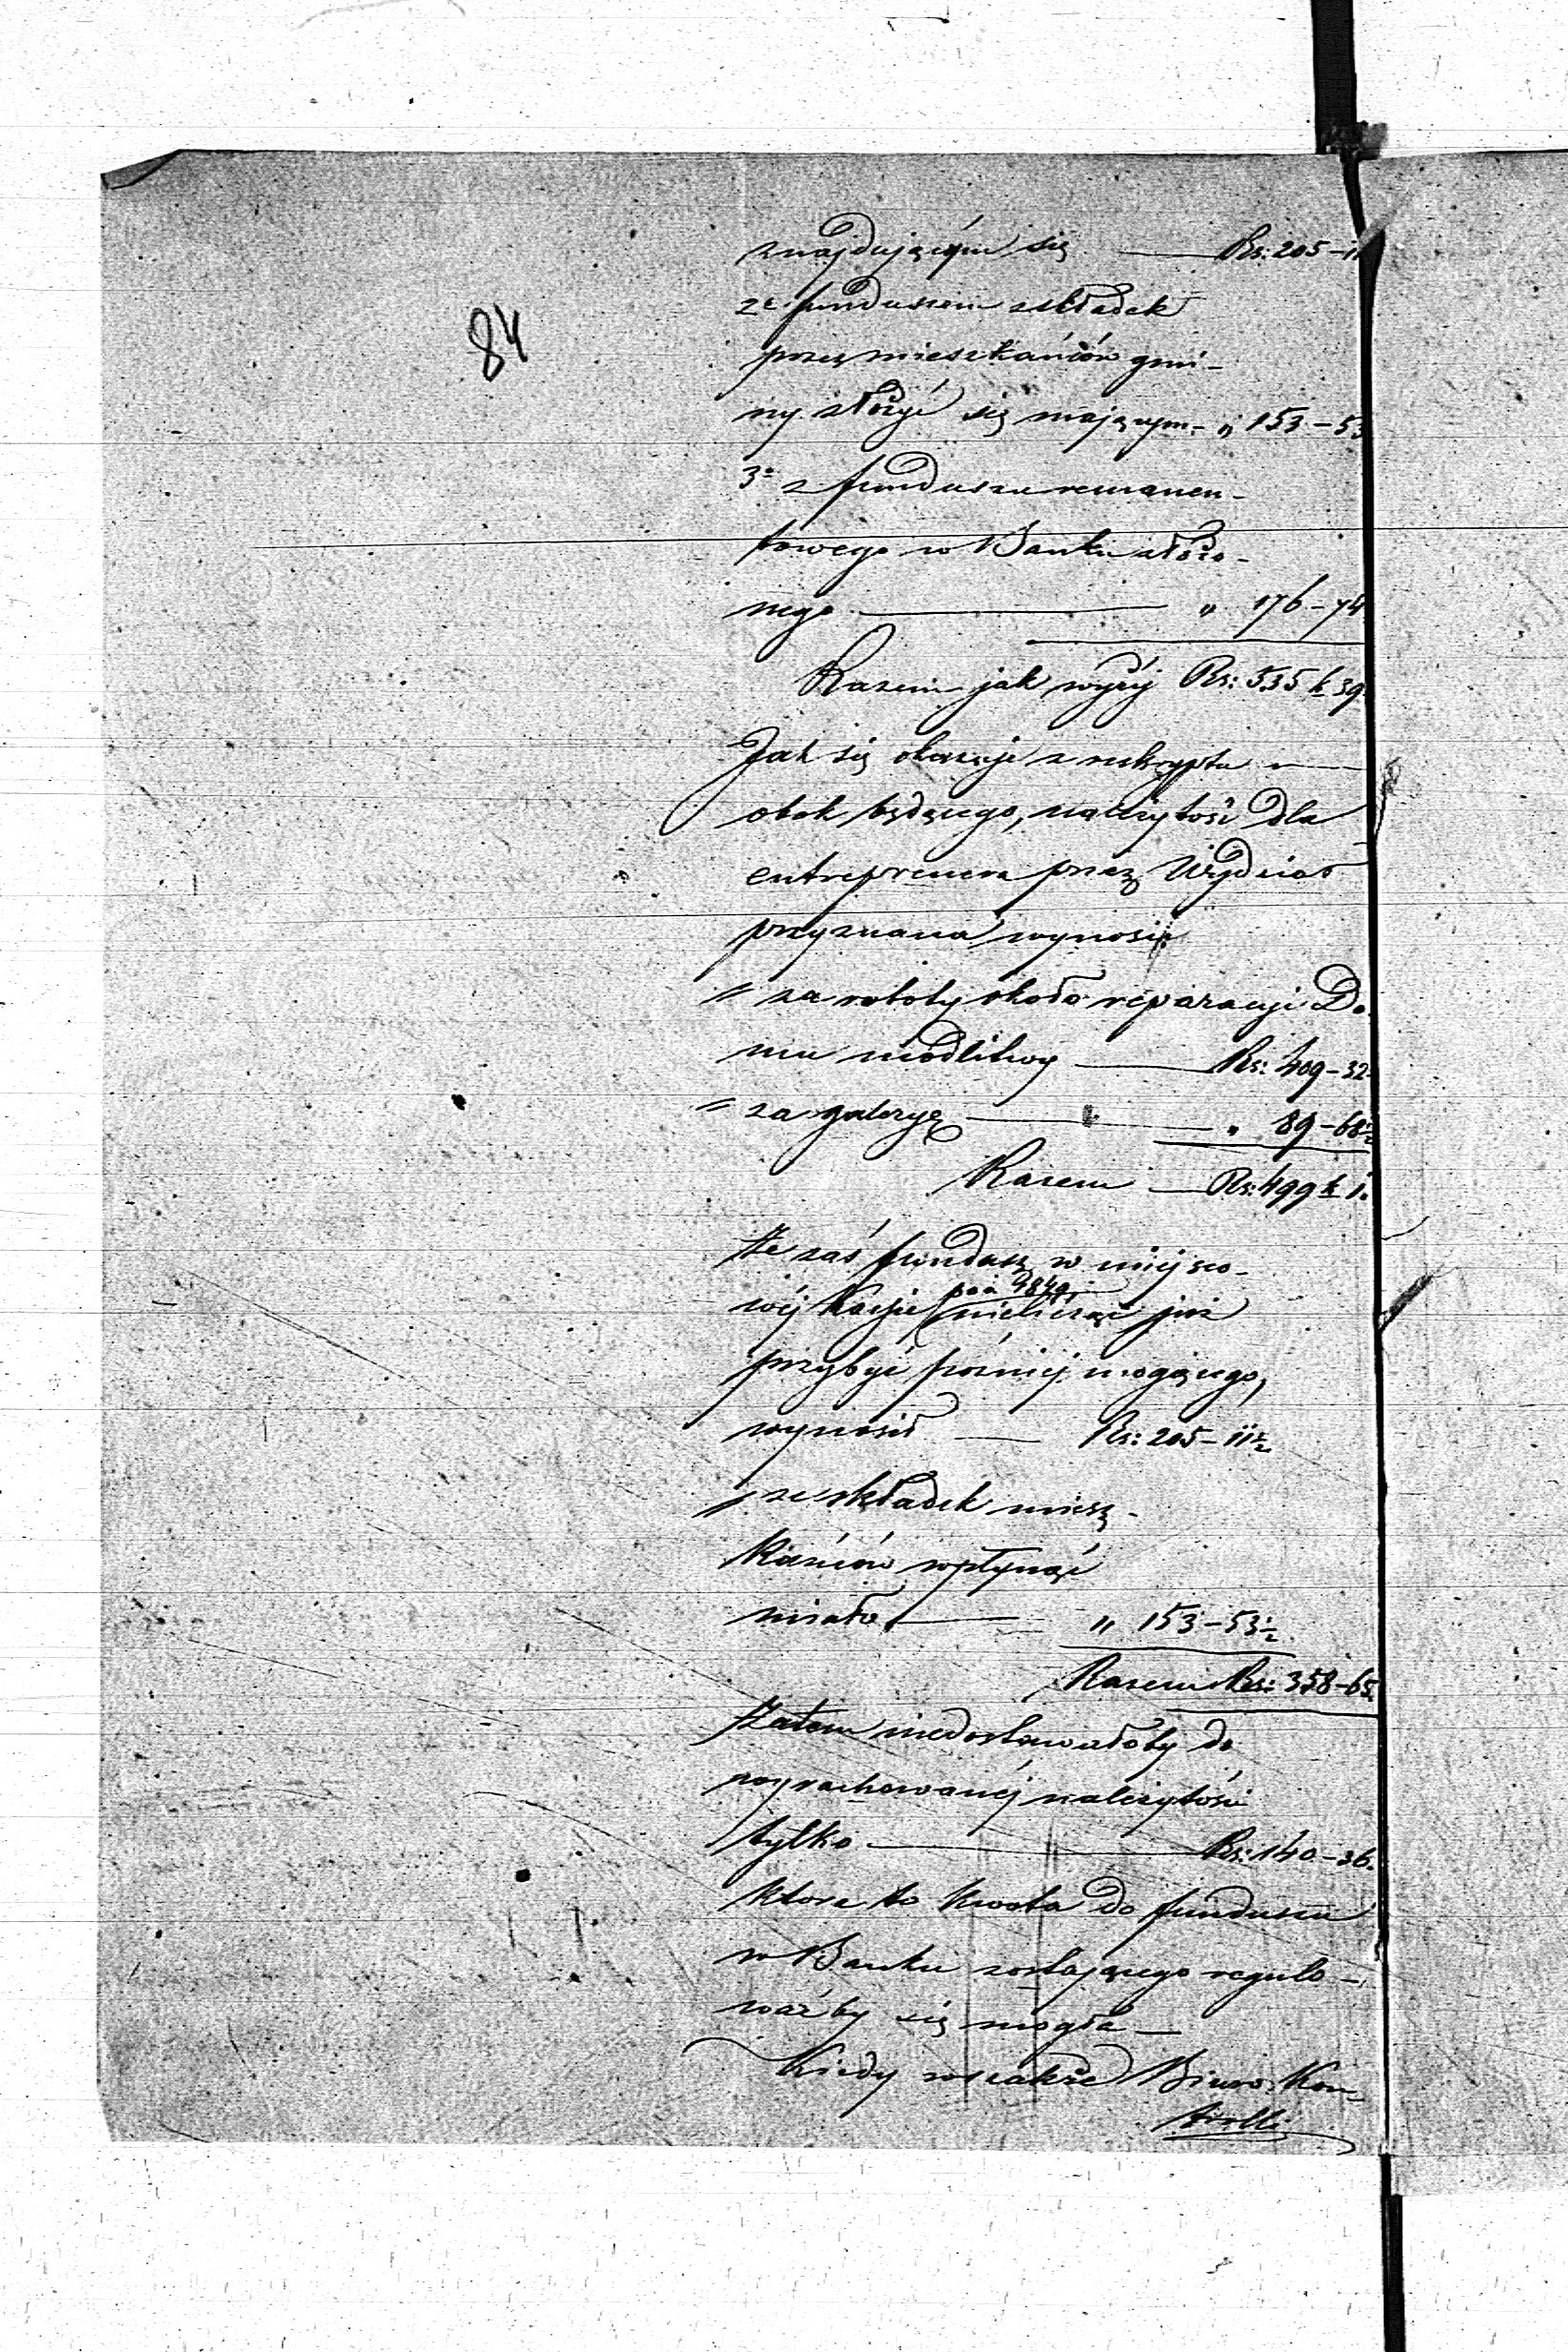 84
znajdującym się — Rs: 205 – 11
2e funduszem składek
przez mieszkańców gmi-
ny złożyć się mającym – „ 153 – 53
3e z funduszu remanen-
towego w Banku złożo-
nego — „ 176 – 74
Razem jak wyżéj Rs: 535 k 39.
Jak się okazuje z reskryptu —
obok będącego, należytość dla
entreprenera przez Wydział
przyznana wynosi:
= za roboty około reparacyi Do-
mu modlitwy — Rs: 409 – 32.
= za galeryę — „ 89 – 68½
Razem — Rs: 499 k 1.
Że zaś fundusz w miejsco-
wéj Kassie nielicząc już
przybyć poźniéj mogącego,
wynosił — Rs: 205 – 11½
ze składek miesz-
kańców wpłynąć
miało — „ 153 – 53½
Razem Rs: 358 – 65.
Zatem niedostawałoby do
wyrachowanéj należytości
tylko — Rs: 140 – 36.
która to kwota do funduszu
w Banku zostającego regulo-
waćby się mogła —
Kiedy wszakże Biuro Kon-
trolli